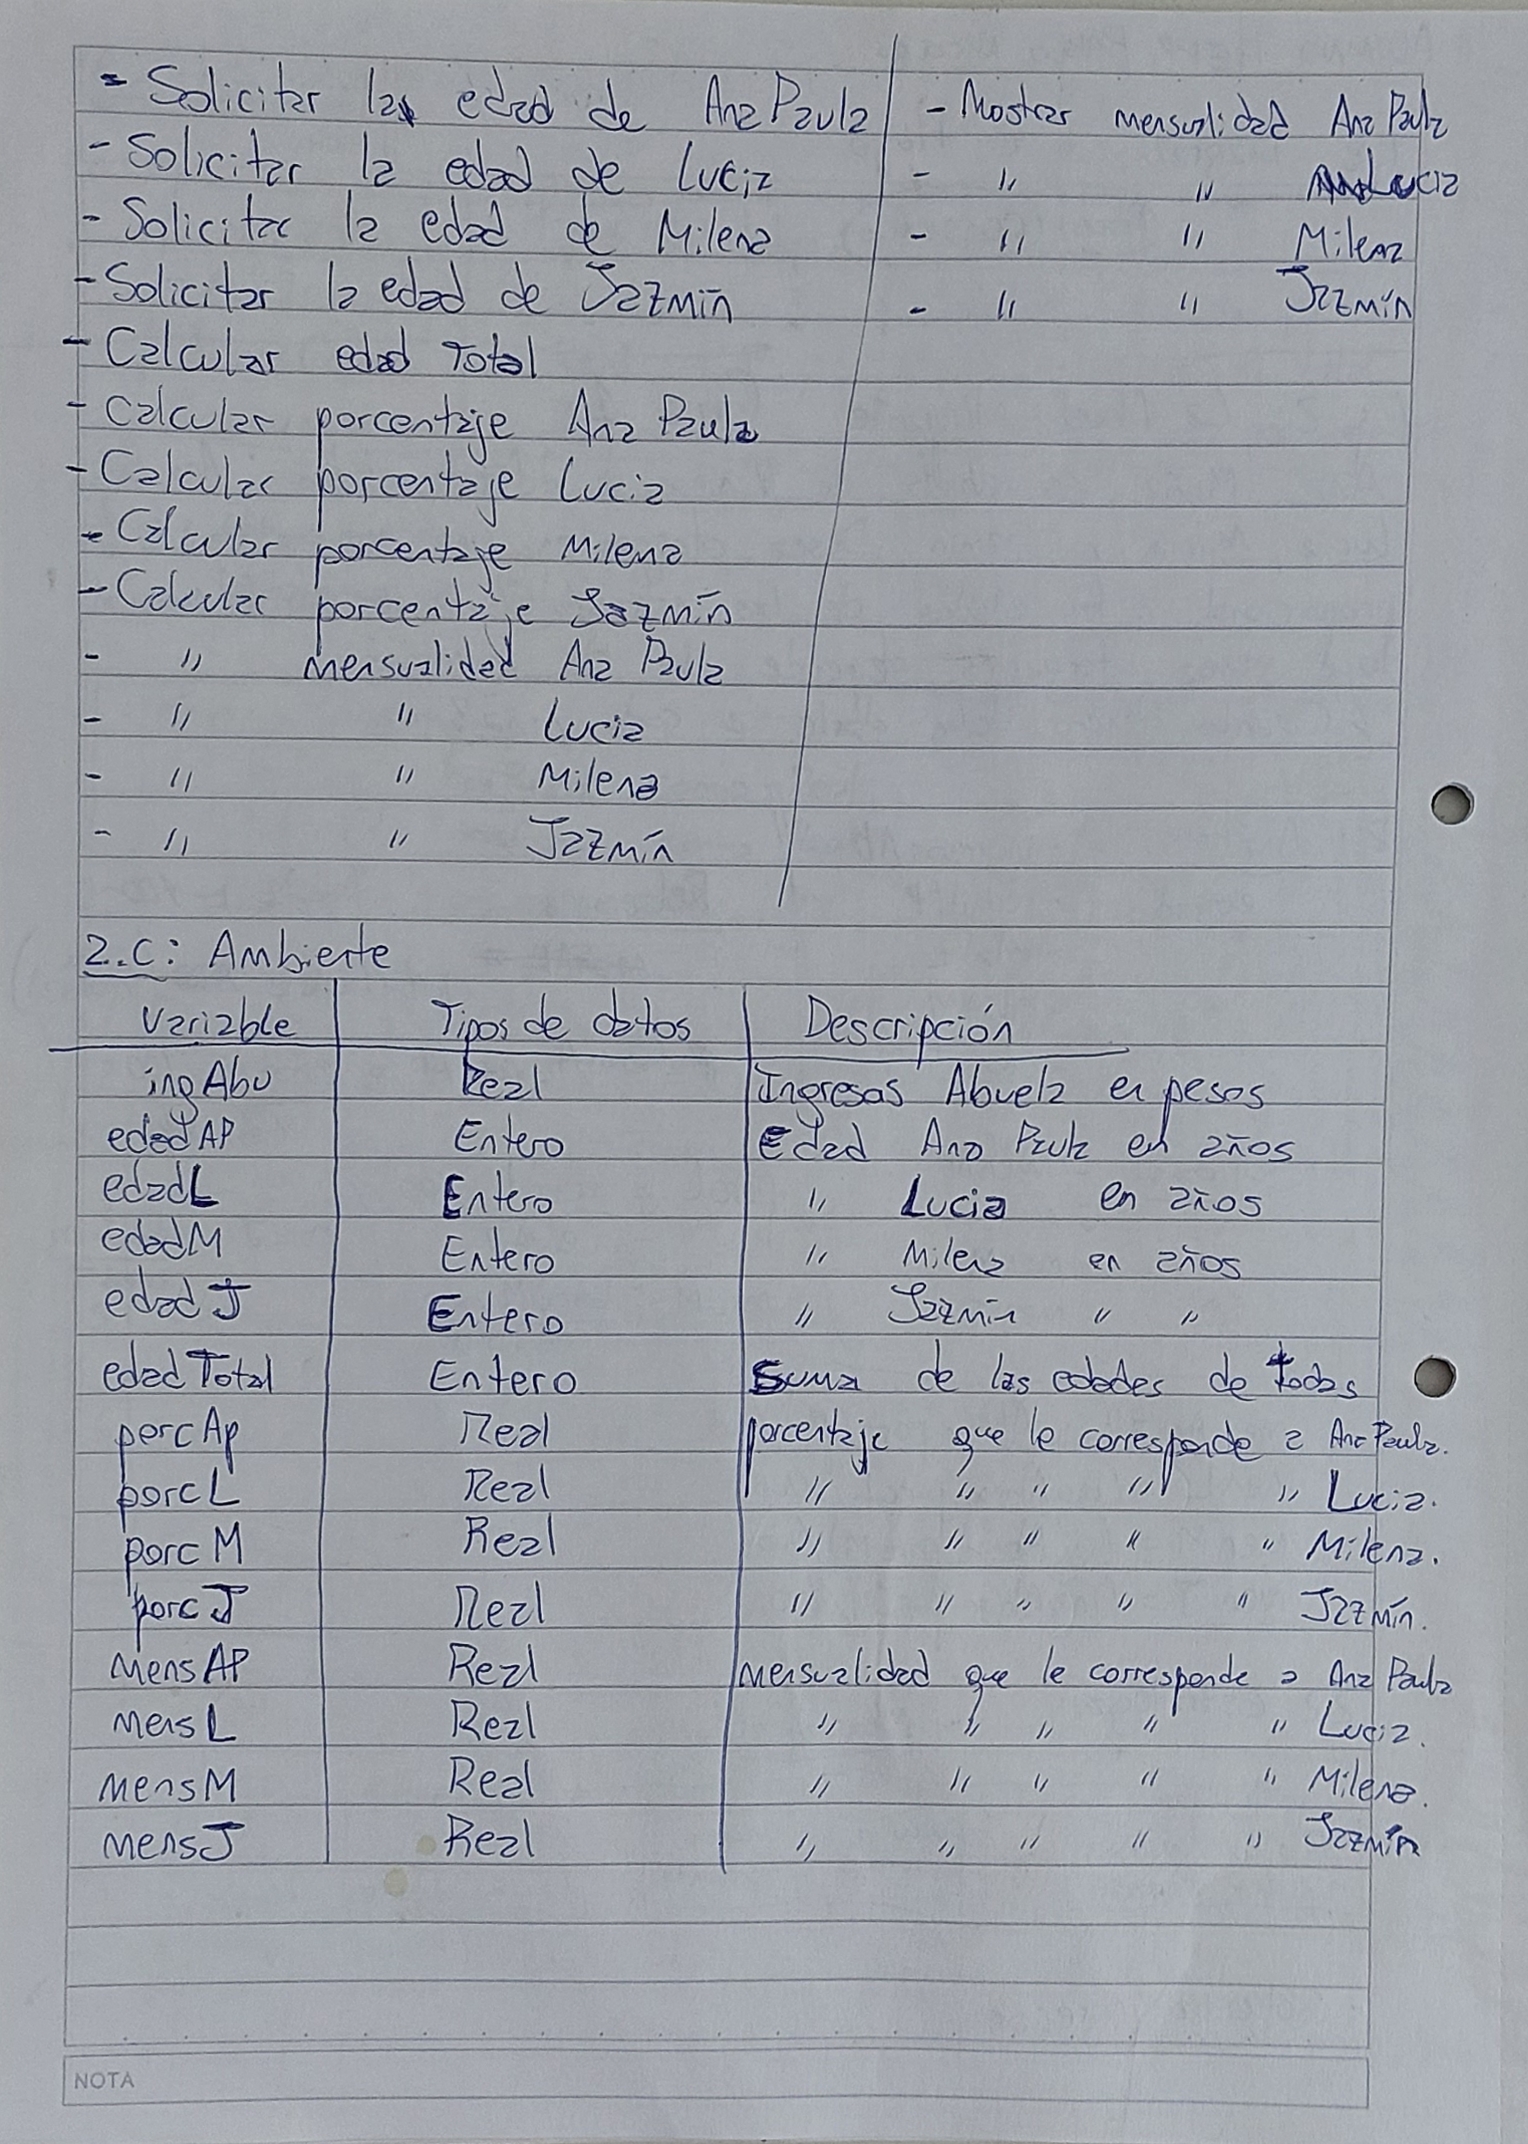 - Solicitar la edad de Ana Paula
- Solicitar la edad de Lucia
- Solicitar la edad de Milena
- Solicitar la edad de Jazmín
- Calcular edad Total
- Calcular porcentaje Ana Paula
- Calcular porcentaje Lucia
- Calcular porcentaje Milena
- Calcular porcentaje Jazmín
- " mensualidad Ana Paula
- " " Lucia
- " " Milena
- " " Jazmín
- Mostrar mensualidad Ana Paula
- " " Lucia
- " " Milena
- " " Jazmín
2.C: Ambiente
Variable Tipos de datos Descripción
ingAbu Real Ingresas Abuela en pesos
edadAP Entero Edad Ana Paula en años
edadL Entero " Lucia en años
edadM Entero " Milena en años
edadJ Entero " Jazmín " "
edadTotal Entero Suma de las edades de todas
porcAp Real porcentaje que le corresponde a Ana Paula.
porcL Real " " " " " Lucia.
porcM Real " " " " " Milena.
porcJ Real " " " " " Jazmín.
mensAP Real mensualidad que le corresponde a Ana Paula
mensL Real " " " " " Lucia.
mensM Real " " " " " Milena.
mensJ Real " " " " " Jazmín
NOTA